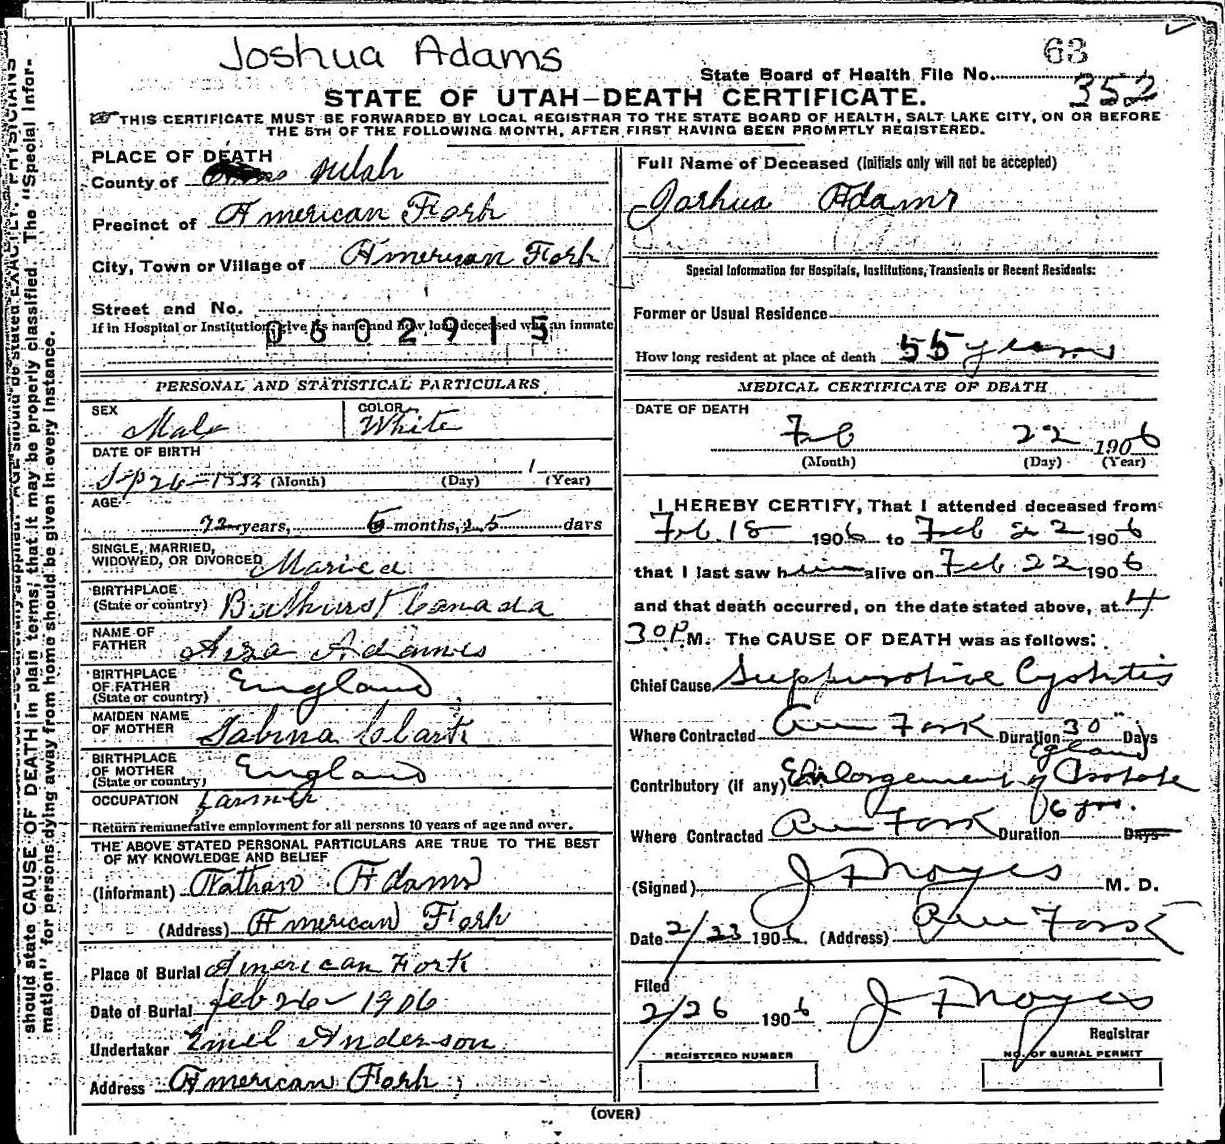 Joshua Adams
63
State Board of Health File No. 352
STATE OF UTAH–DEATH CERTIFICATE.
THIS CERTIFICATE MUST BE FORWARDED BY LOCAL REGISTRAR TO THE STATE BOARD OF HEALTH, SALT LAKE CITY, ON OR BEFORE
THE 5TH OF THE FOLLOWING MONTH, AFTER FIRST HAVING BEEN PROMPTLY REGISTERED.
PHYSICIANS
should state CAUSE OF DEATH in plain terms, that it may be properly classified. The "Special Infor-
mation" for persons dying away from home should be given in every instance.
PLACE OF DEATH
County of Utah
Precinct of American Fork
City, Town or Village of American Fork
Street and No.
If in Hospital or Institution, give its name and how long deceased was an inmate
0602915
PERSONAL AND STATISTICAL PARTICULARS
SEX Male
COLOR White
DATE OF BIRTH
Sep 26 – 1833 (Month) (Day) (Year)
AGE
72 years, 5 months, 25 days
SINGLE, MARRIED,
WIDOWED, OR DIVORCED Maried
BIRTHPLACE
(State or country) Bathurst Canada
NAME OF
FATHER Arza Adams
BIRTHPLACE
OF FATHER England
(State or country)
MAIDEN NAME
OF MOTHER Sabina Clark
BIRTHPLACE
OF MOTHER England
(State or country)
OCCUPATION Farmer
Return remunerative employment for all persons 10 years of age and over.
THE ABOVE STATED PERSONAL PARTICULARS ARE TRUE TO THE BEST
OF MY KNOWLEDGE AND BELIEF
(Informant) Nathan Adams
(Address) American Fork
Place of Burial American Fork
Date of Burial feb 26 – 1906
Undertaker Emil Anderson
Address American Fork
Full Name of Deceased (Initials only will not be accepted)
Joshua Adams
Special Information for Hospitals, Institutions, Transients or Recent Residents:
Former or Usual Residence
How long resident at place of death 55 years
MEDICAL CERTIFICATE OF DEATH
DATE OF DEATH
Feb 22 1906
(Month) (Day) (Year)
I HEREBY CERTIFY, That I attended deceased from
Feb. 18 1906 to Feb 22 1906
that I last saw him alive on Feb 22 1906
and that death occurred, on the date stated above, at 4
30 P M. The CAUSE OF DEATH was as follows:
Chief Cause Suppurative Cystitis
Where Contracted Am Fork Duration 30 Days
Contributory (if any) Enlargement of Prostate
(gland)
Where Contracted Am Fork Duration 6 yrs. Days
(Signed) J F Noyes M. D.
Date 2/23 1906 (Address) Am Fork
Filed
2/26 1906 J F Noyes
Registrar
REGISTERED NUMBER
NO. OF BURIAL PERMIT
(OVER)